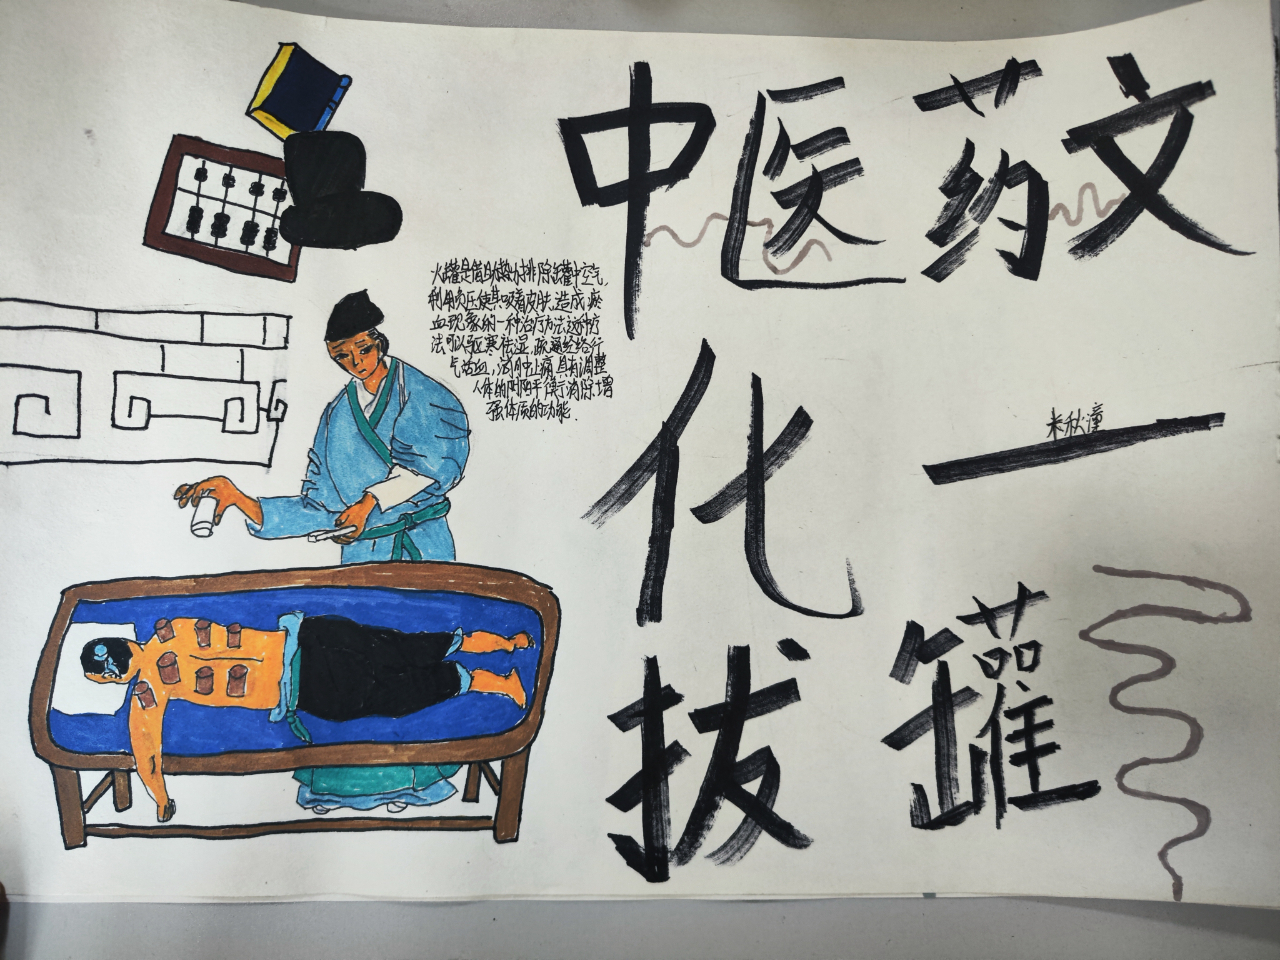 中医药文
化一
拔罐
米秋潼
火罐是借助热力排除罐中空气,
利用负压使其吸着皮肤,造成瘀
血现象的一种治疗方法.这种疗
法可以驱寒祛湿、疏通经络、行
气活血,消肿止痛,具有调整
人体的阴阳平衡、消除增
强体质的功能.